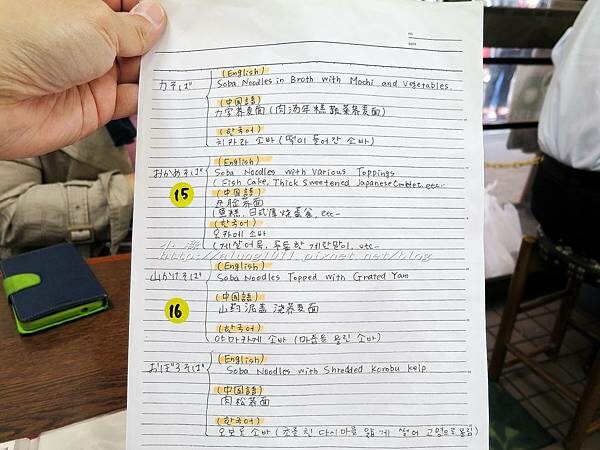 (English)
力そば Soba Noodles in Broth with Mochi and Vegetables.
(中国語)
力字荞麦面 (肉汤年糕蔬菜荞麦面)
(한국어)
치카라 소바 (떡이 들어간 소바)
(English)
おかめそば Soba Noodles with Various Toppings
(Fish Cake, Thick Sweetened Japanese Omlet, etc-
15
(中国語)
荞麦面
(鱼糕, 日式厚烧蛋, etc-
(한국어)
오카메 소바
(게살어묵, 두툼한 계란말이, etc-
http://alung1011.pixnet.net/blog
(English)
山かけそば Soba Noodles Topped with Grated Yam
16
(中国語)
山药泥盖浇荞麦面
(한국어)
야마카케 소바 (마즙을 올린 소바)
(English)
おぼろそば Soba Noodles with Shredded Kombu kelp
(中国語)
肉松荞面
(한국어)
오보로 소바 (초절친 다시마를 얇게 썰어 고명으로 올림)